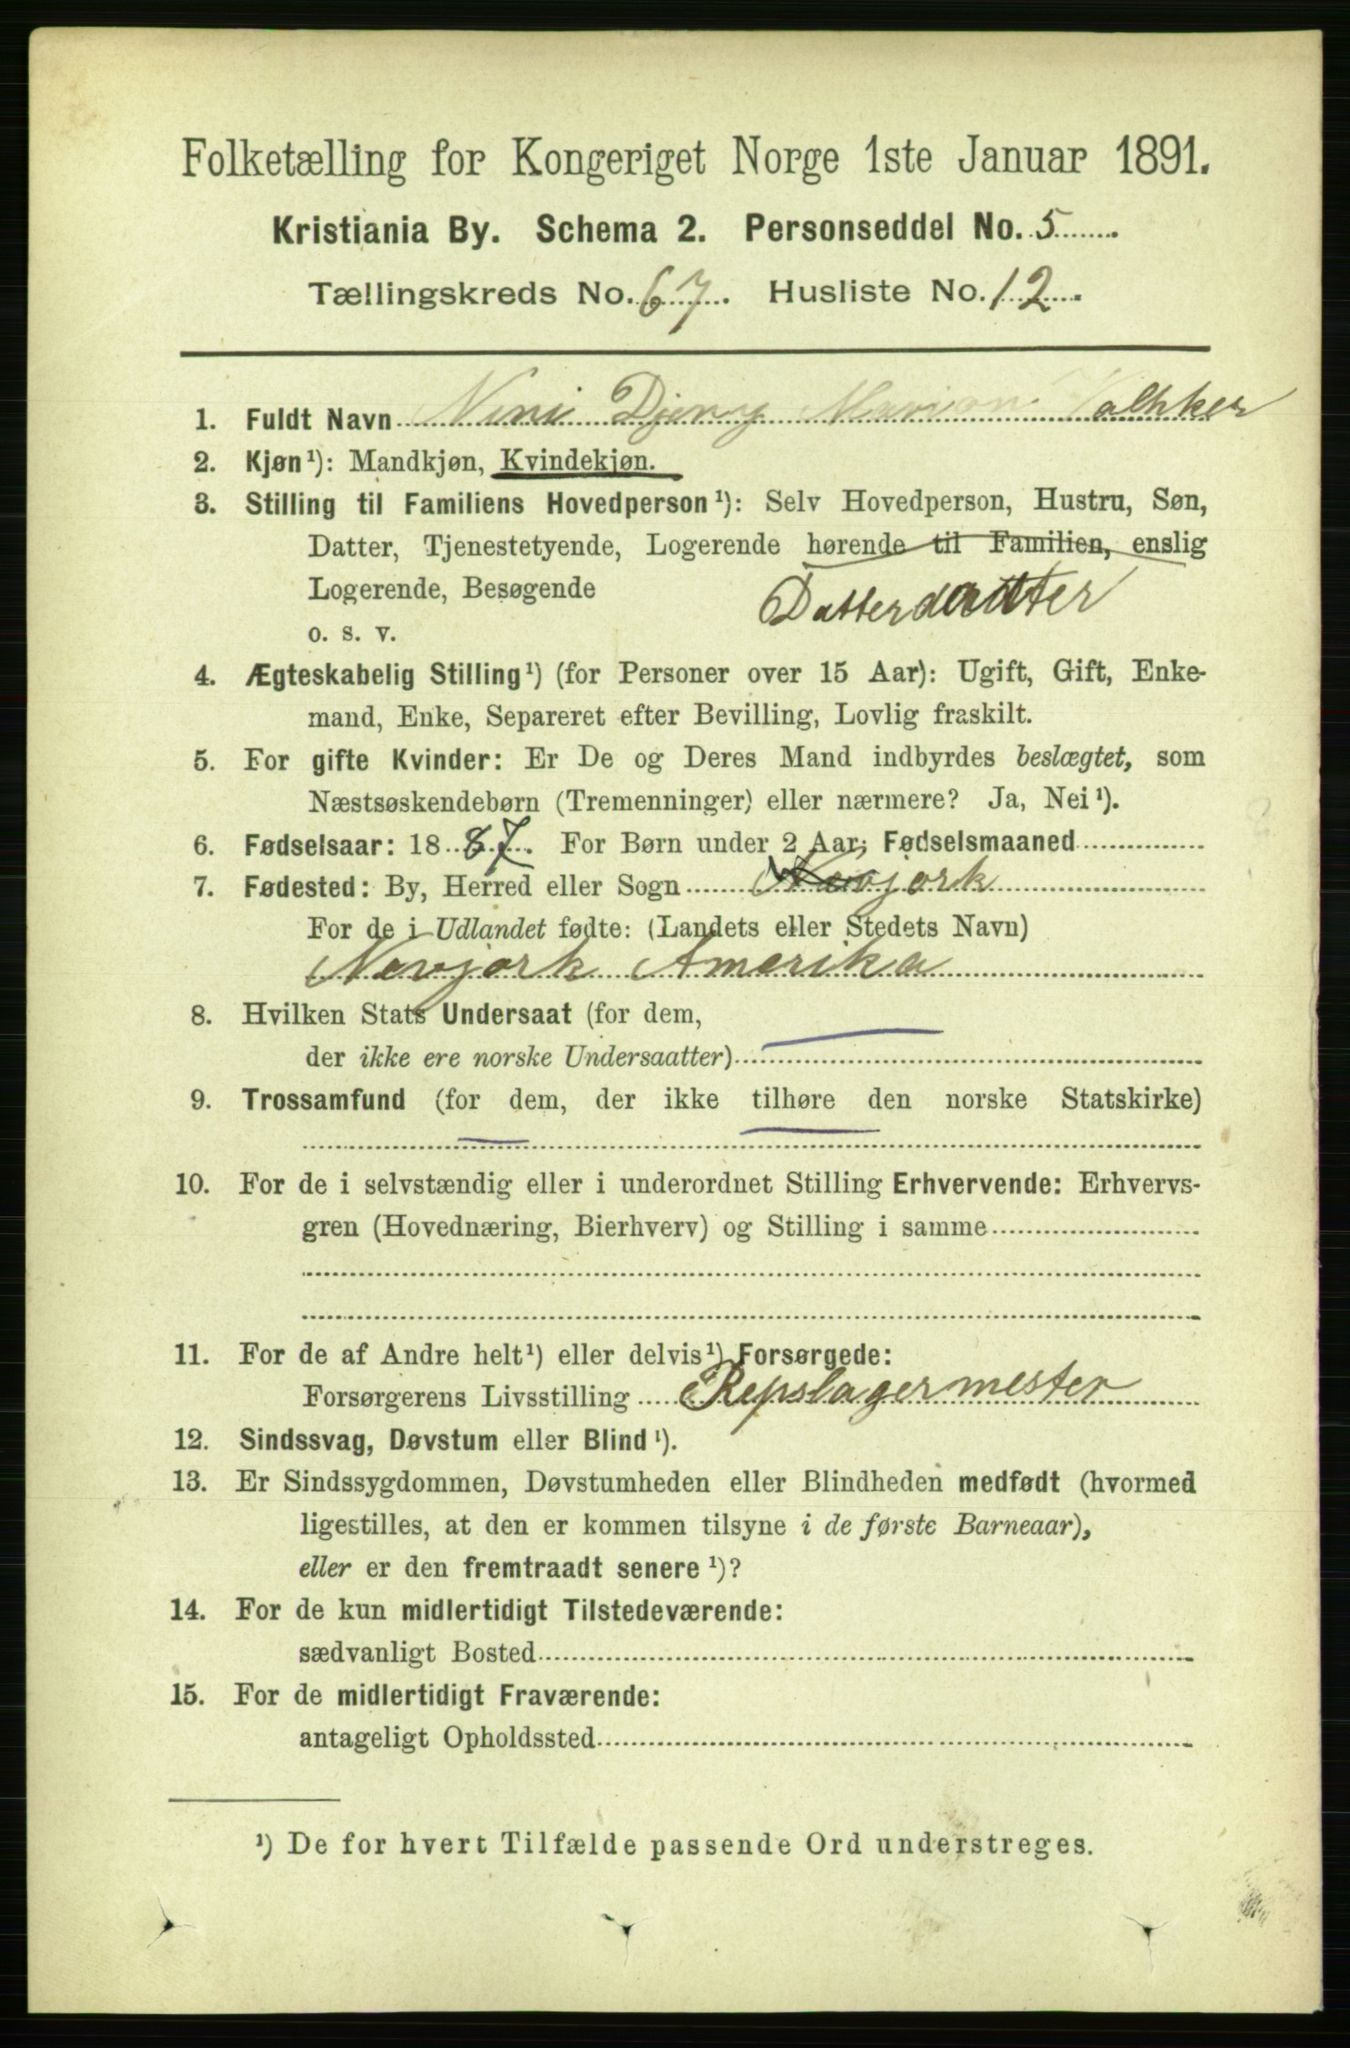 Folketælling for Kongeriget Norge 1ste Januar 1891.
Kristiania By. Schema 2. Personseddel No. 5
Tællingskreds No. 67. Husliste No. 12.
1. Fuldt Navn Nini Djeny Marion Valkker
2. Kjøn¹): Mandkjøn, Kvindekjøn.
3. Stilling til Familiens Hovedperson¹): Selv Hovedperson, Hustru, Søn,
Datter, Tjenestetyende, Logerende hørende til Familien, enslig
Logerende, Besøgende Datterdatter
o. s. v.
4. Ægteskabelig Stilling¹) (for Personer over 15 Aar): Ugift, Gift, Enke-
mand, Enke, Separeret efter Bevilling, Lovlig fraskilt.
5. For gifte Kvinder: Er De og Deres Mand indbyrdes beslægtet, som
Næstsøskendebørn (Tremenninger) eller nærmere? Ja, Nei¹).
6. Fødselsaar: 1887. For Børn under 2 Aar: Fødselsmaaned
7. Fødested: By, Herred eller Sogn Nevjork
For de i Udlandet fødte: (Landets eller Stedets Navn)
Nevjork Amerika
8. Hvilken Stats Undersaat (for dem,
der ikke ere norske Undersaatter)
9. Trossamfund (for dem, der ikke tilhøre den norske Statskirke)
10. For de i selvstændig eller i underordnet Stilling Erhvervende: Erhvervs-
gren (Hovednæring, Bierhverv) og Stilling i samme
11. For de af Andre helt¹) eller delvis¹) Forsørgede:
Forsørgerens Livsstilling Repslagermester
12. Sindssvag, Døvstum eller Blind¹).
13. Er Sindssygdommen, Døvstumheden eller Blindheden medfødt (hvormed
ligestilles, at den er kommen tilsyne i de første Barneaar),
eller er den fremtraadt senere¹)?
14. For de kun midlertidigt Tilstedeværende:
sædvanligt Bosted
15. For de midlertidigt Fraværende:
antageligt Opholdssted
¹) De for hvert Tilfælde passende Ord understreges.